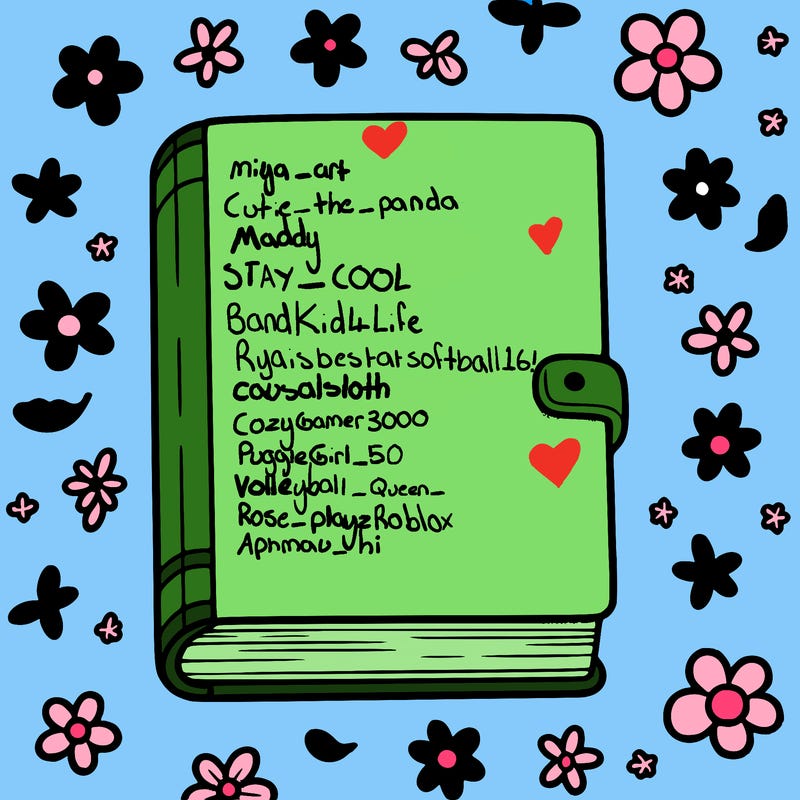 miya_art
Cutie_the_panda
Maddy
STAY_COOL
BandKid4Life
Ryaisbestatsoftball16!
causalsloth
CozyGamer3000
PuggleGirl_50
Volleyball_Queen_
Rose_playzRoblox
Aphmau_hi